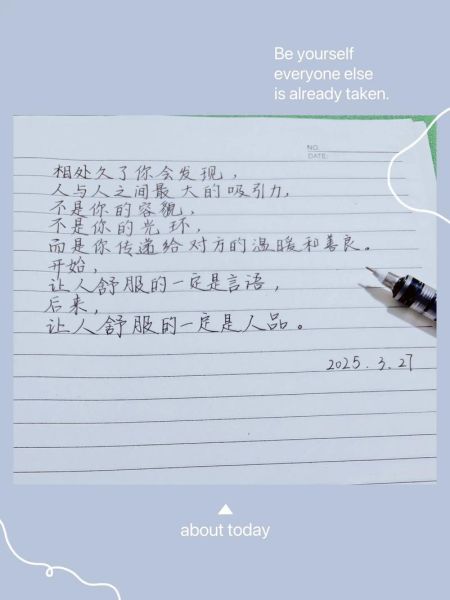 Be yourself
everyone else
is already taken.
NO.
DATE:
相处久了你会发现，
人与人之间最大的吸引力，
不是你的容貌，
不是你的光环，
而是你传递给对方的温暖和善良。
开始，
让人舒服的一定是言语，
后来，
让人舒服的一定是人品。
2025.3.27
about today